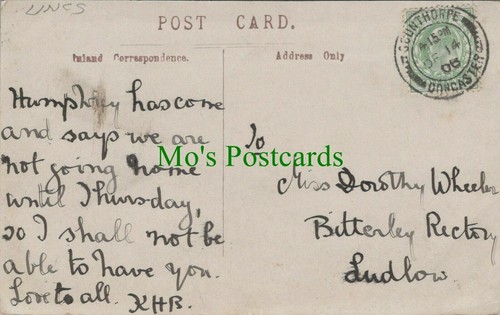 LINCS
POST CARD.
Inland Correspondence.
Address Only
SCUNTHORPE
4.15PM
14
05
DONCASTER
Humphley has come
and says we are
not going home
until Thursday,
so I shall not be
able to have you.
Love to all. KHB.
To
Miss Dorothy Wheeler
Bitterley Rectory
Ludlow.
Mo's Postcards